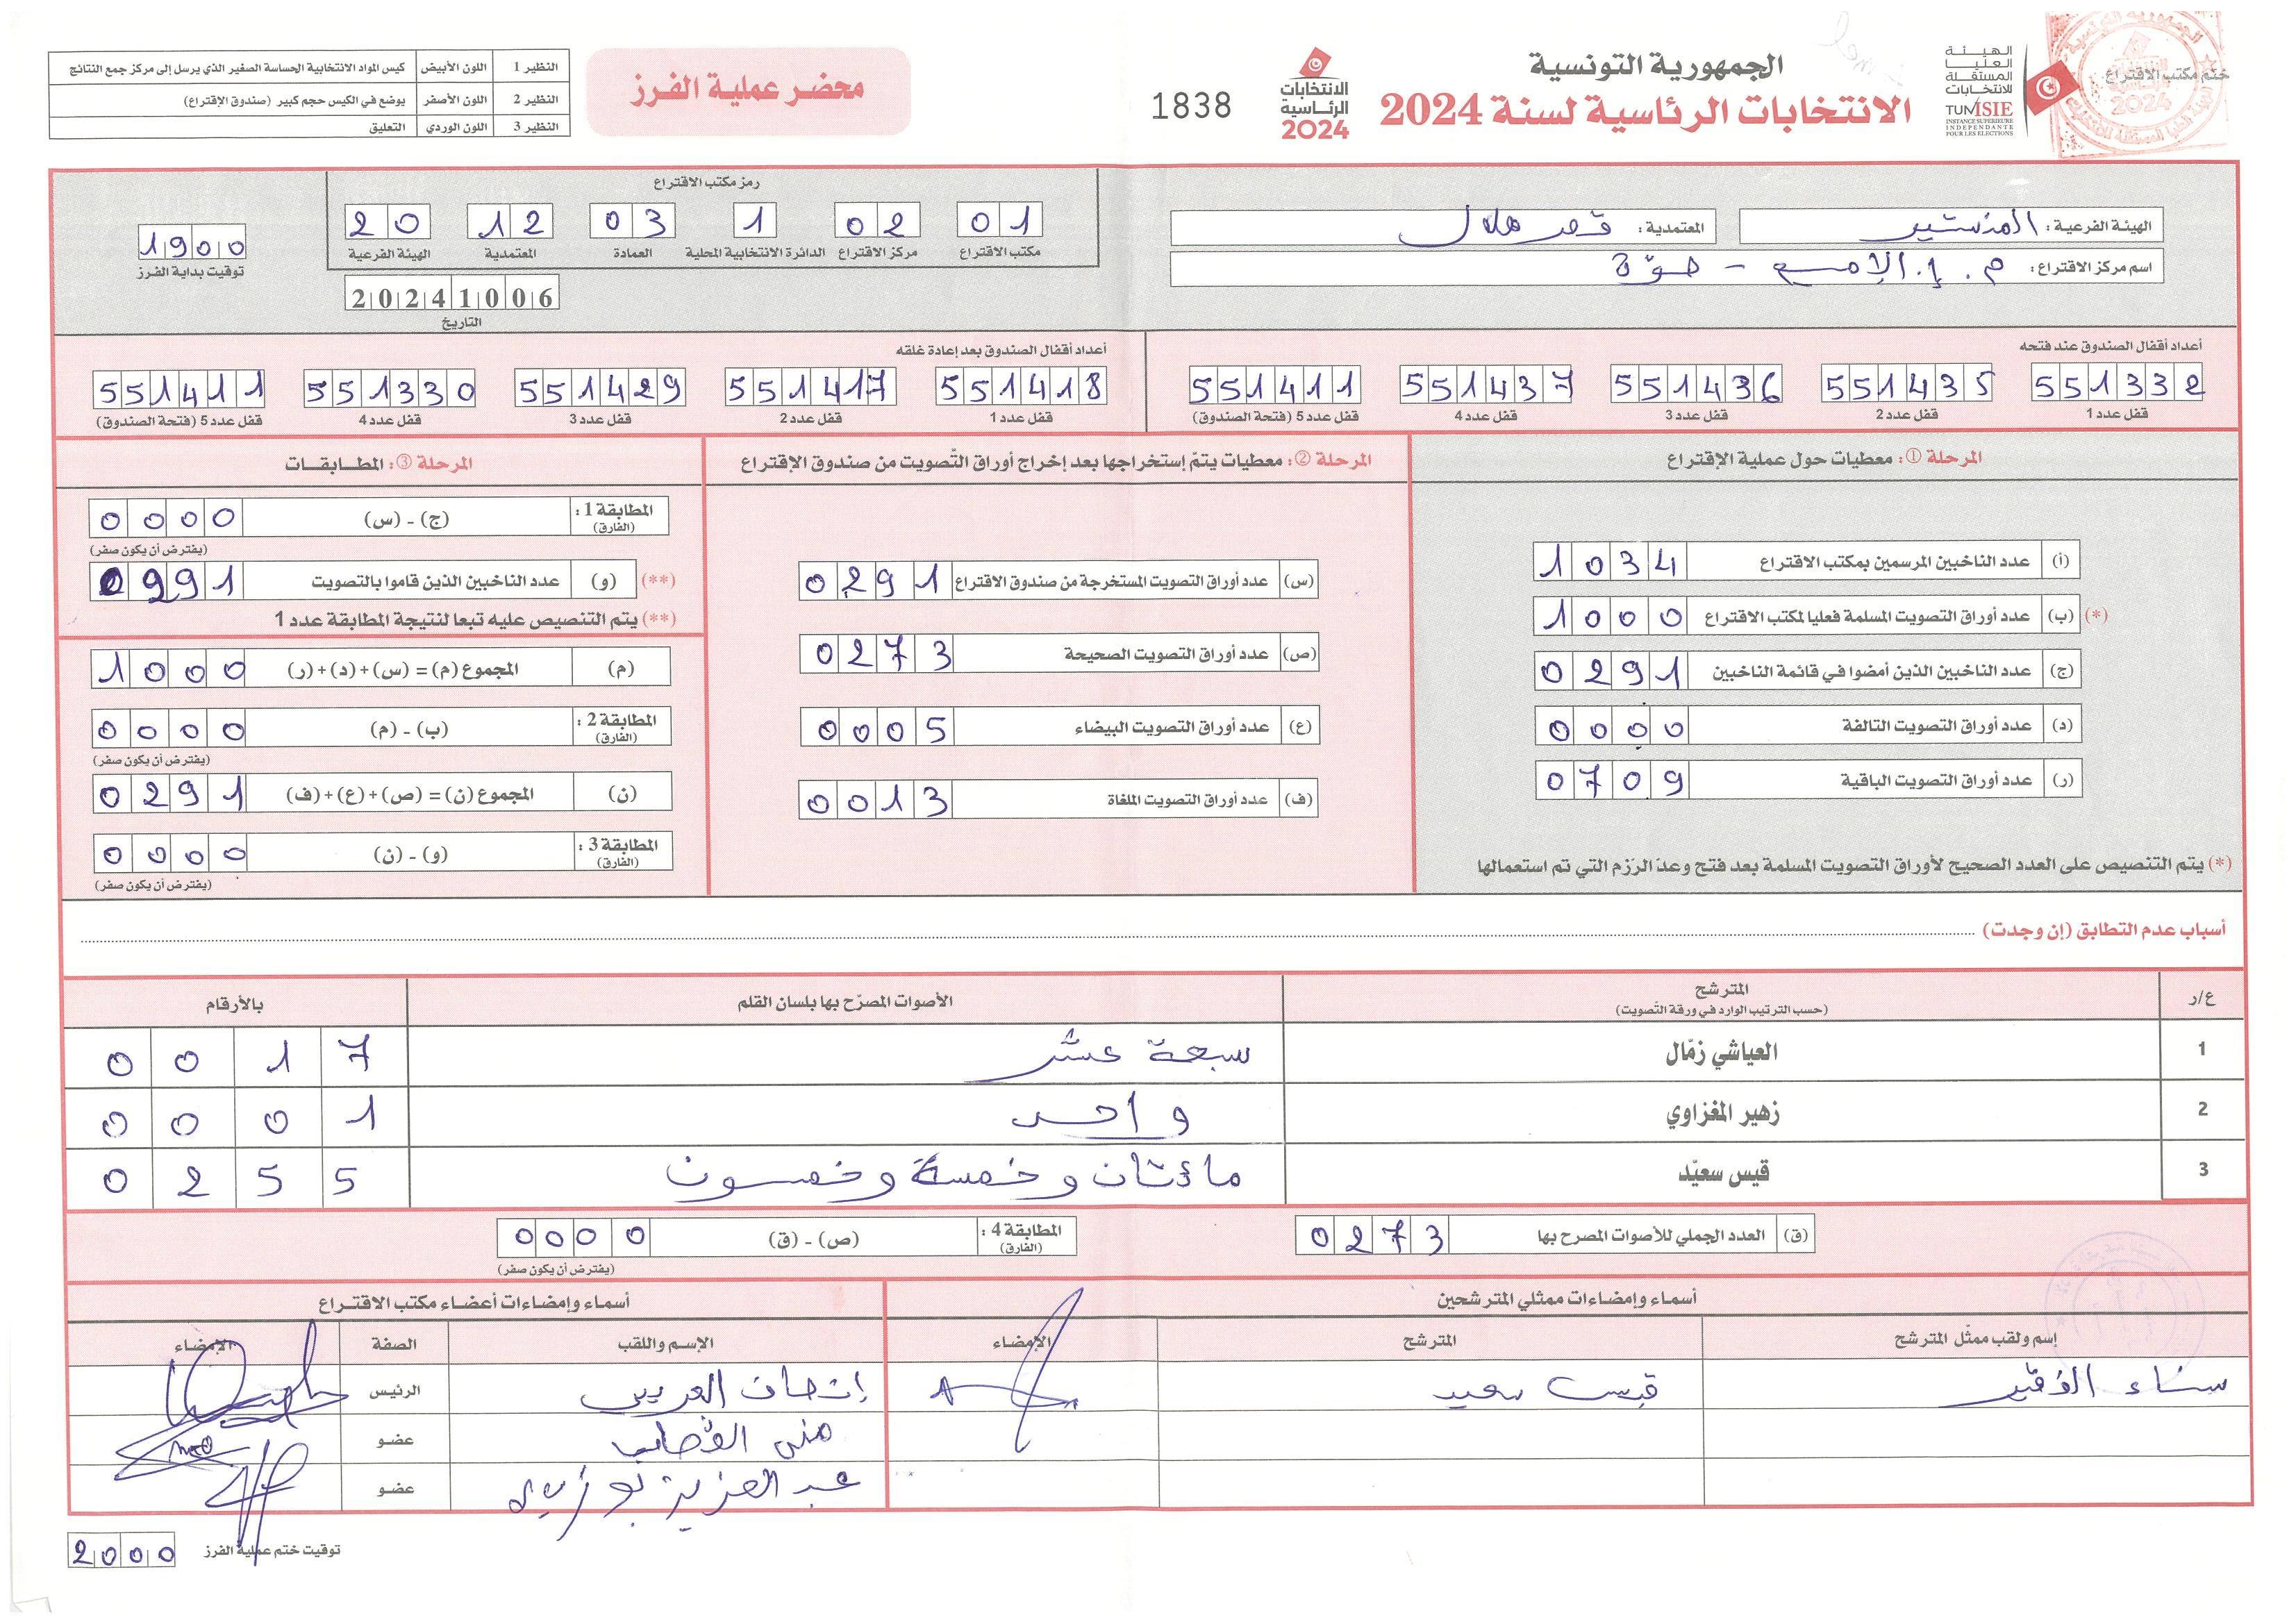 ختم مكتب الاقتراع
الهيئة العليا المستقلة للانتخابات
TUNISIE
INSTANCE SUPERIEURE INDEPENDANTE POUR LES ELECTIONS
الجمهورية التونسية
الانتخابات الرئاسية لسنة 2024
الانتخابات الرئاسية 2024
1838
محضر عملية الفرز
النظير 1 اللون الأبيض كيس المواد الانتخابية الحساسة الصغير الذي يرسل إلى مركز جمع النتائج
النظير 2 اللون الأصفر يوضع في الكيس حجم كبير (صندوق الإقتراع)
النظير 3 اللون الوردي التعليق
الهيئة الفرعية: المنستير
المعتمدية: قصر هلال
اسم مركز الاقتراع:
رمز مكتب الاقتراع
01 مكتب الاقتراع
02 مركز الاقتراع
1 الدائرة الانتخابية المحلية
03 العمادة
12 المعتمدية
20 الهيئة الفرعية
20241006
التاريخ
1900
توقيت بداية الفرز
أعداد أقفال الصندوق عند فتحه
551332 قفل عدد 1
551435 قفل عدد 2
551436 قفل عدد 3
551437 قفل عدد 4
551411 قفل عدد 5 (فتحة الصندوق)
أعداد أقفال الصندوق بعد إعادة غلقه
551418 قفل عدد 1
551417 قفل عدد 2
551429 قفل عدد 3
551330 قفل عدد 4
551411 قفل عدد 5 (فتحة الصندوق)
المرحلة ①: معطيات حول عملية الإقتراع
(أ) عدد الناخبين المرسمين بمكتب الاقتراع 1034
(*) (ب) عدد أوراق التصويت المسلمة فعليا لمكتب الاقتراع 1000
(ج) عدد الناخبين الذين أمضوا في قائمة الناخبين 0291
(د) عدد أوراق التصويت التالفة 0000
(ر) عدد أوراق التصويت الباقية 0709
(*) يتم التنصيص على العدد الصحيح لأوراق التصويت المسلمة بعد فتح وعدّ الرّزم التي تم استعمالها
المرحلة ②: معطيات يتمّ إستخراجها بعد إخراج أوراق التّصويت من صندوق الإقتراع
(س) عدد أوراق التصويت المستخرجة من صندوق الاقتراع 0291
(ص) عدد أوراق التصويت الصحيحة 0273
(ع) عدد أوراق التصويت البيضاء 0005
(ف) عدد أوراق التصويت الملغاة 0013
المرحلة ③: المطابقات
المطابقة 1: (الفارق) (ج) - (س) 0000
(يفترض أن يكون صفر)
(**) (و) عدد الناخبين الذين قاموا بالتصويت 0991
(**) يتم التنصيص عليه تبعا لنتيجة المطابقة عدد 1
(م) المجموع (م) = (س)+(د)+(ر) 1000
المطابقة 2: (الفارق) (ب) - (م) 0000
(يفترض أن يكون صفر)
(ن) المجموع (ن) = (ص)+(ع)+(ف) 0291
المطابقة 3: (الفارق) (و) - (ن) 0000
(يفترض أن يكون صفر)
أسباب عدم التطابق (إن وجدت)
ع/ر المترشح (حسب الترتيب الوارد في ورقة التّصويت) الأصوات المصرّح بها بلسان القلم بالأرقام
1 العياشي زمّال سبعة عشر 0017
2 زهير المغزاوي واحد 0001
3 قيس سعيّد مائتان وخمسة وخمسون 0255
(ق) العدد الجملي للأصوات المصرح بها 0273
المطابقة 4: (الفارق) (ص) - (ق) 0000
(يفترض أن يكون صفر)
أسماء وإمضاءات ممثلي المترشحين
إسم ولقب ممثّل المترشح المترشح الإمضاء
سناء قيس سعيد
أسماء وإمضاءات أعضاء مكتب الاقتراع
الإسم واللقب الصفة الإمضاء
الرئيس
منى عضو
عبد العزيز عضو
توقيت ختم عملية الفرز 2000